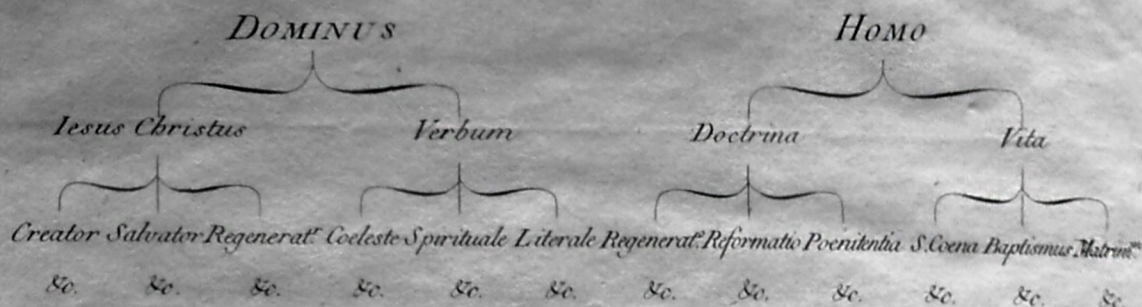 DOMINUS HOMO
Iesus Christus Verbum Doctrina Vita
Creator Salvator Regenerat.r Coeleste Spirituale Literale Regenerat.o Reformatio Poenitentia S. Coena Baptismus Matrim.m
&c. &c. &c. &c. &c. &c. &c. &c. &c. &c. &c. &c.